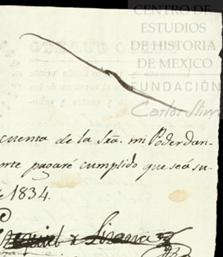 CENTRO DE
ESTUDIOS
DE HISTORIA
DE MEXICO
FUNDACIÓN
Carlos Slim
cuenta de la Sra. mi Poderdan-
pagaré cumplido que sea su
de 1834.